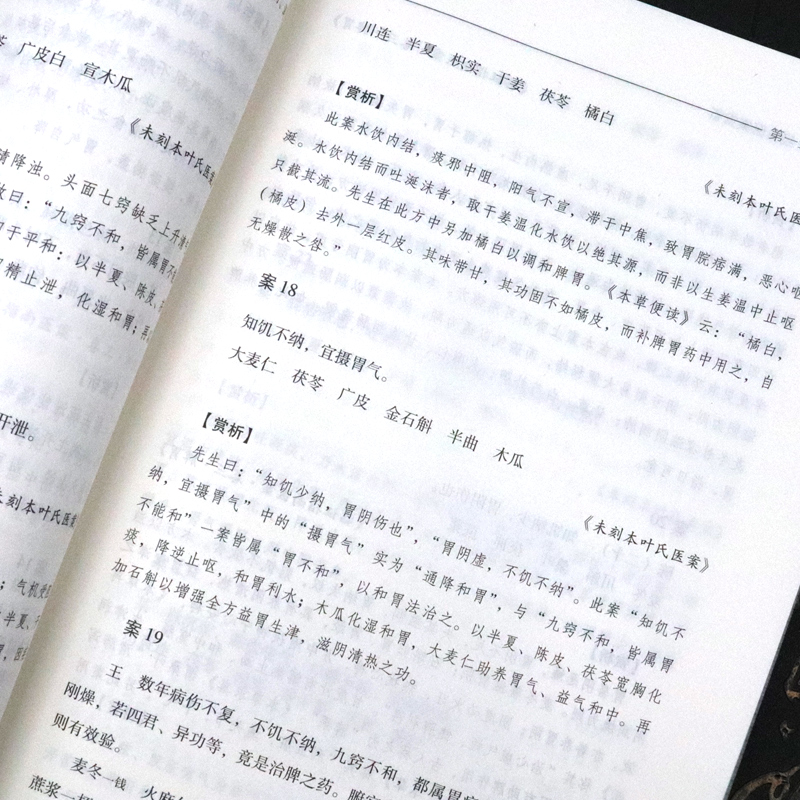 苓 广皮白 宣木瓜
《未刻本叶氏医案
清降浊。头面七窍缺乏上升清
故曰：“九窍不和，皆属胃不
于平和；以半夏、陈皮、
精止泄，化湿和胃；再
开泄。
未刻本叶氏医案
；气机受
半夏、
胃，
第一
川连 半夏 枳实 干姜 茯苓 橘白
《未刻本叶氏医
【赏析】
此案水饮内结，痰邪中阻，阳气不宣，滞于中焦，致胃脘痞满，恶心呕
涎。水饮内结而吐涎沫者，取干姜温化水饮以绝其源，而非以生姜温中止呕
只截其流。先生在此方中另加橘白以调和脾胃。《本草便读》云：“橘白，
（橘皮）去外一层红皮。其味带甘，其功固不如橘皮，而补脾胃药中用之，自
无燥散之咎。”
案 18
知饥不纳，宜摄胃气。
大麦仁 茯苓 广皮 金石斛 半曲 木瓜
《未刻本叶氏医案》
【赏析】
先生曰：“知饥少纳，胃阴伤也”，“胃阴虚，不饥不纳”。此案“知饥不
纳，宜摄胃气”中的“摄胃气”实为“通降和胃”，与“九窍不和，皆属胃
不能和”一案皆属“胃不和”，以和胃法治之。以半夏、陈皮、茯苓宽胸化
痰，降逆止呕，和胃利水；木瓜化湿和胃，大麦仁助养胃气、益气和中。再
加石斛以增强全方益胃生津，滋阴清热之功。
案 19
王 数年病伤不复，不饥不纳，九窍不和，都属胃病
刚燥，若四君、异功等，竟是治脾之药。腑宜
则有效验。
麦冬一钱 火麻
蔗浆一